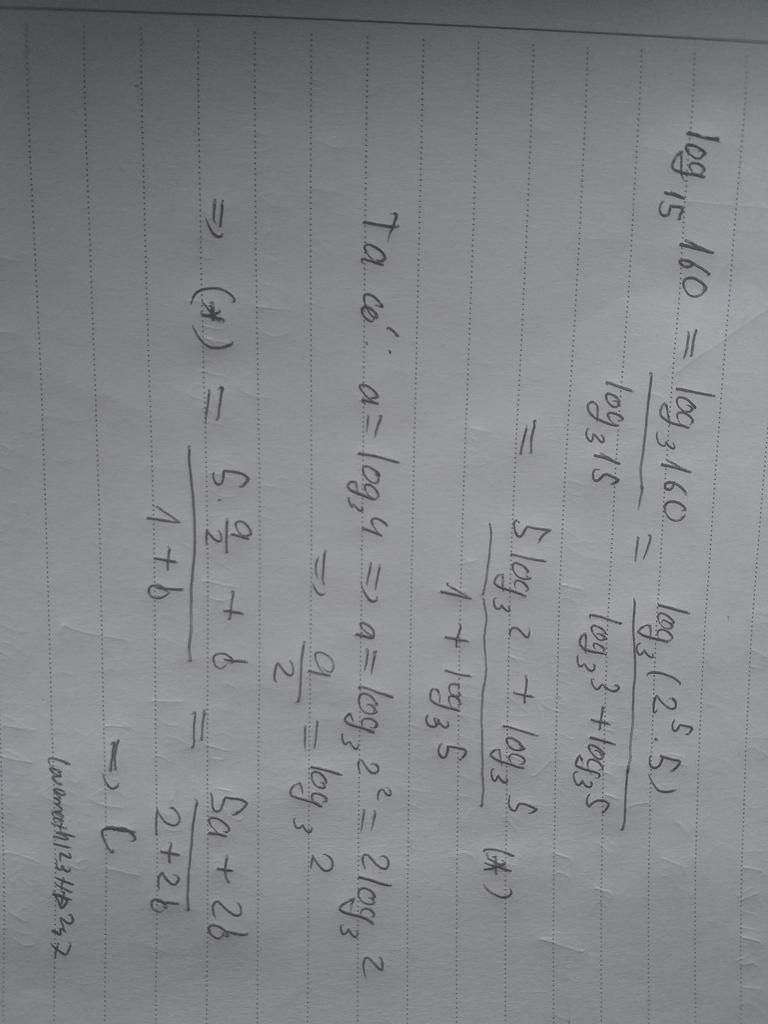 log₁₅ 160 = log₃160 / log₃15 = log₃(2⁵.5) / log₃3 + log₃5
= 5log₃2 + log₃5 / 1 + log₃5 (*)
Ta có: a = log₃4 => a = log₃2² = 2log₃2
=> a/2 = log₃2
=> (*) = 5.a/2 + b / 1 + b = 5a + 2b / 2 + 2b
=> C